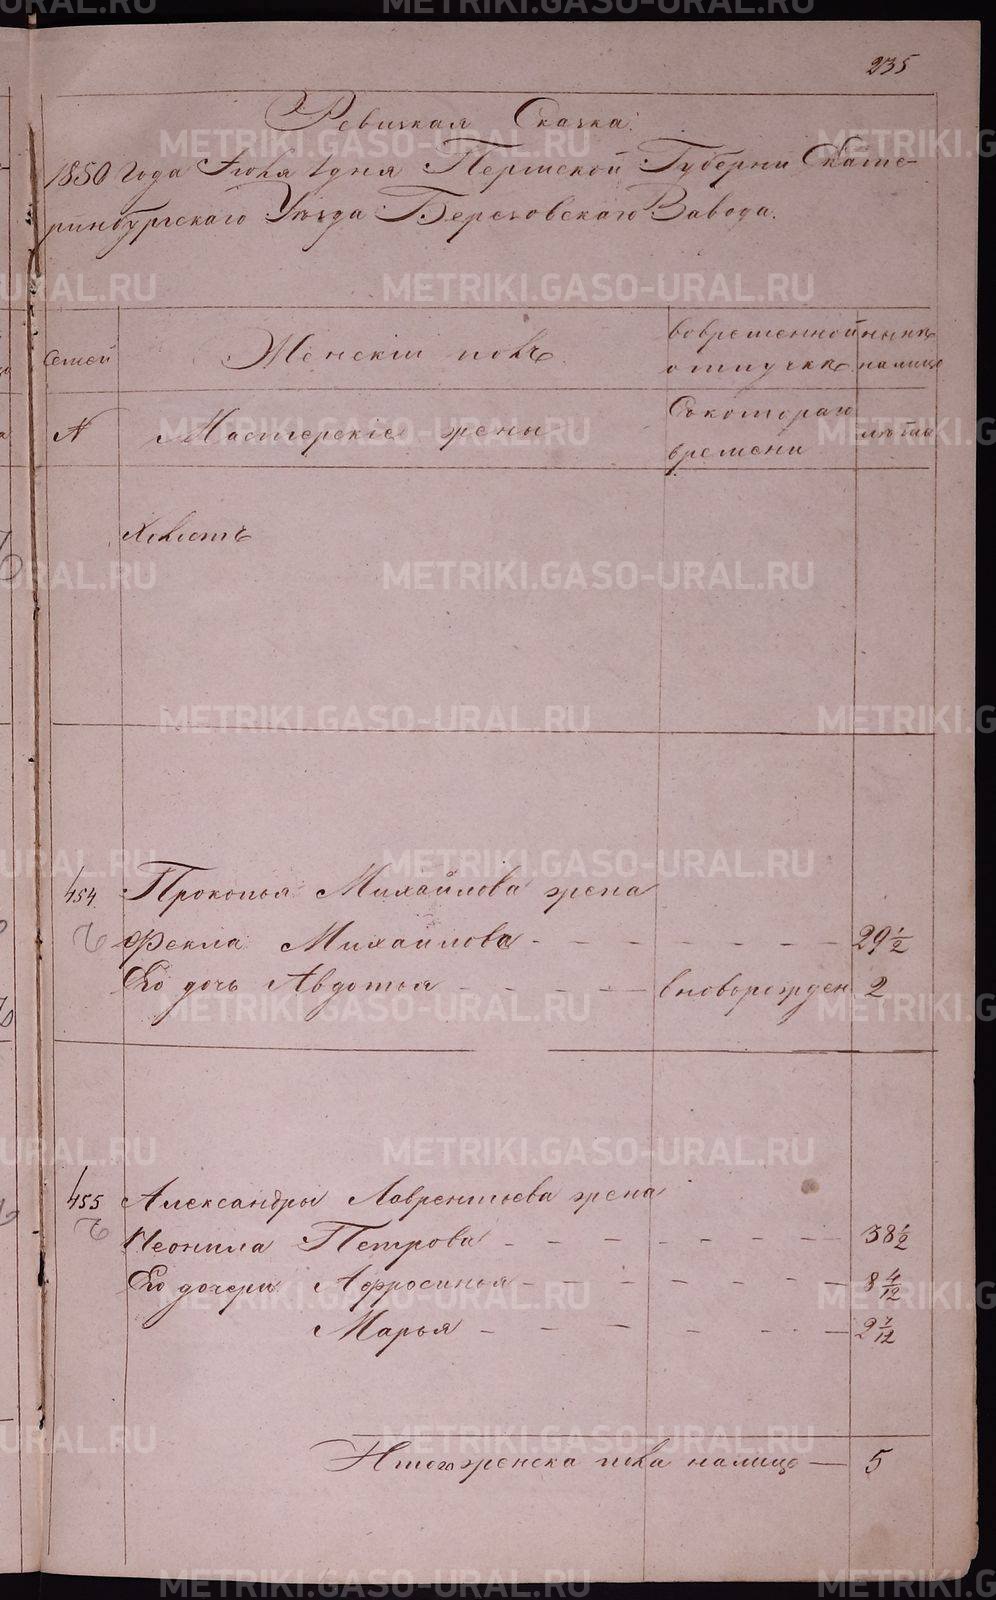 235
Ревизкая Сказка.
1850 года Июля 1 дня Пермской Губерни Екате-
ринбургскаго Уѣзда Березовскаго Завода.
Семей
Женскій полъ
вовременной
отлучкѣ
нынѣ
налицо
N
Мастерскіе жены
Съкотораго
времени
лѣта
Холостъ
454
Прокопья Михайлова жена
Фекла Михайлова - - - - - - - 29 1/2
Его дочь Авдотья - - - - - вноворожден 2
455
Александры Лаврентьева жена
Неонила Петрова - - - - - - - 38 1/2
Его дочери Афросинья - - - - - - 8 4/12
Марья - - - - - - 2 7/12
Итого женска пола налицо — 5
METRIKI.GASO-URAL.RU